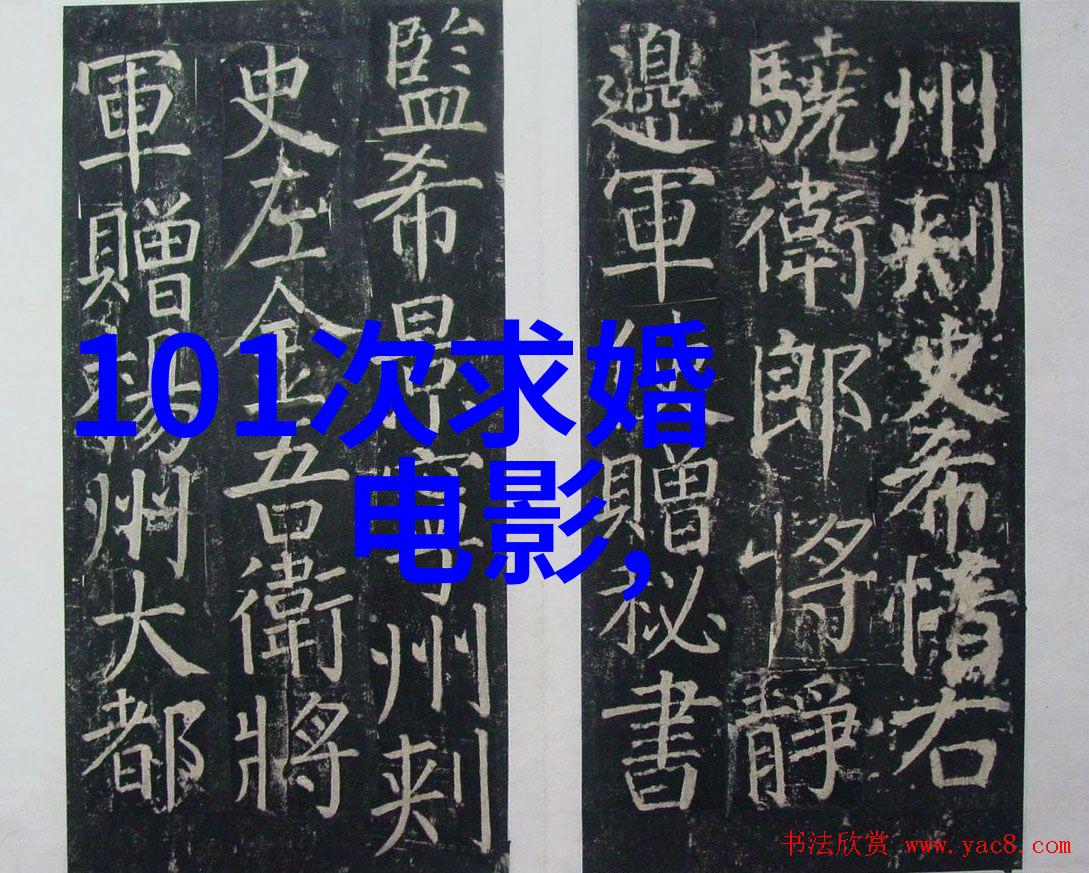 州刺史希右
驍衛郎將靜
邊軍使贈秘書
監希景州刺
史左金吾衛將
軍贈揚州大都
101次求婚
电影,
书法欣赏 www.yac8.com